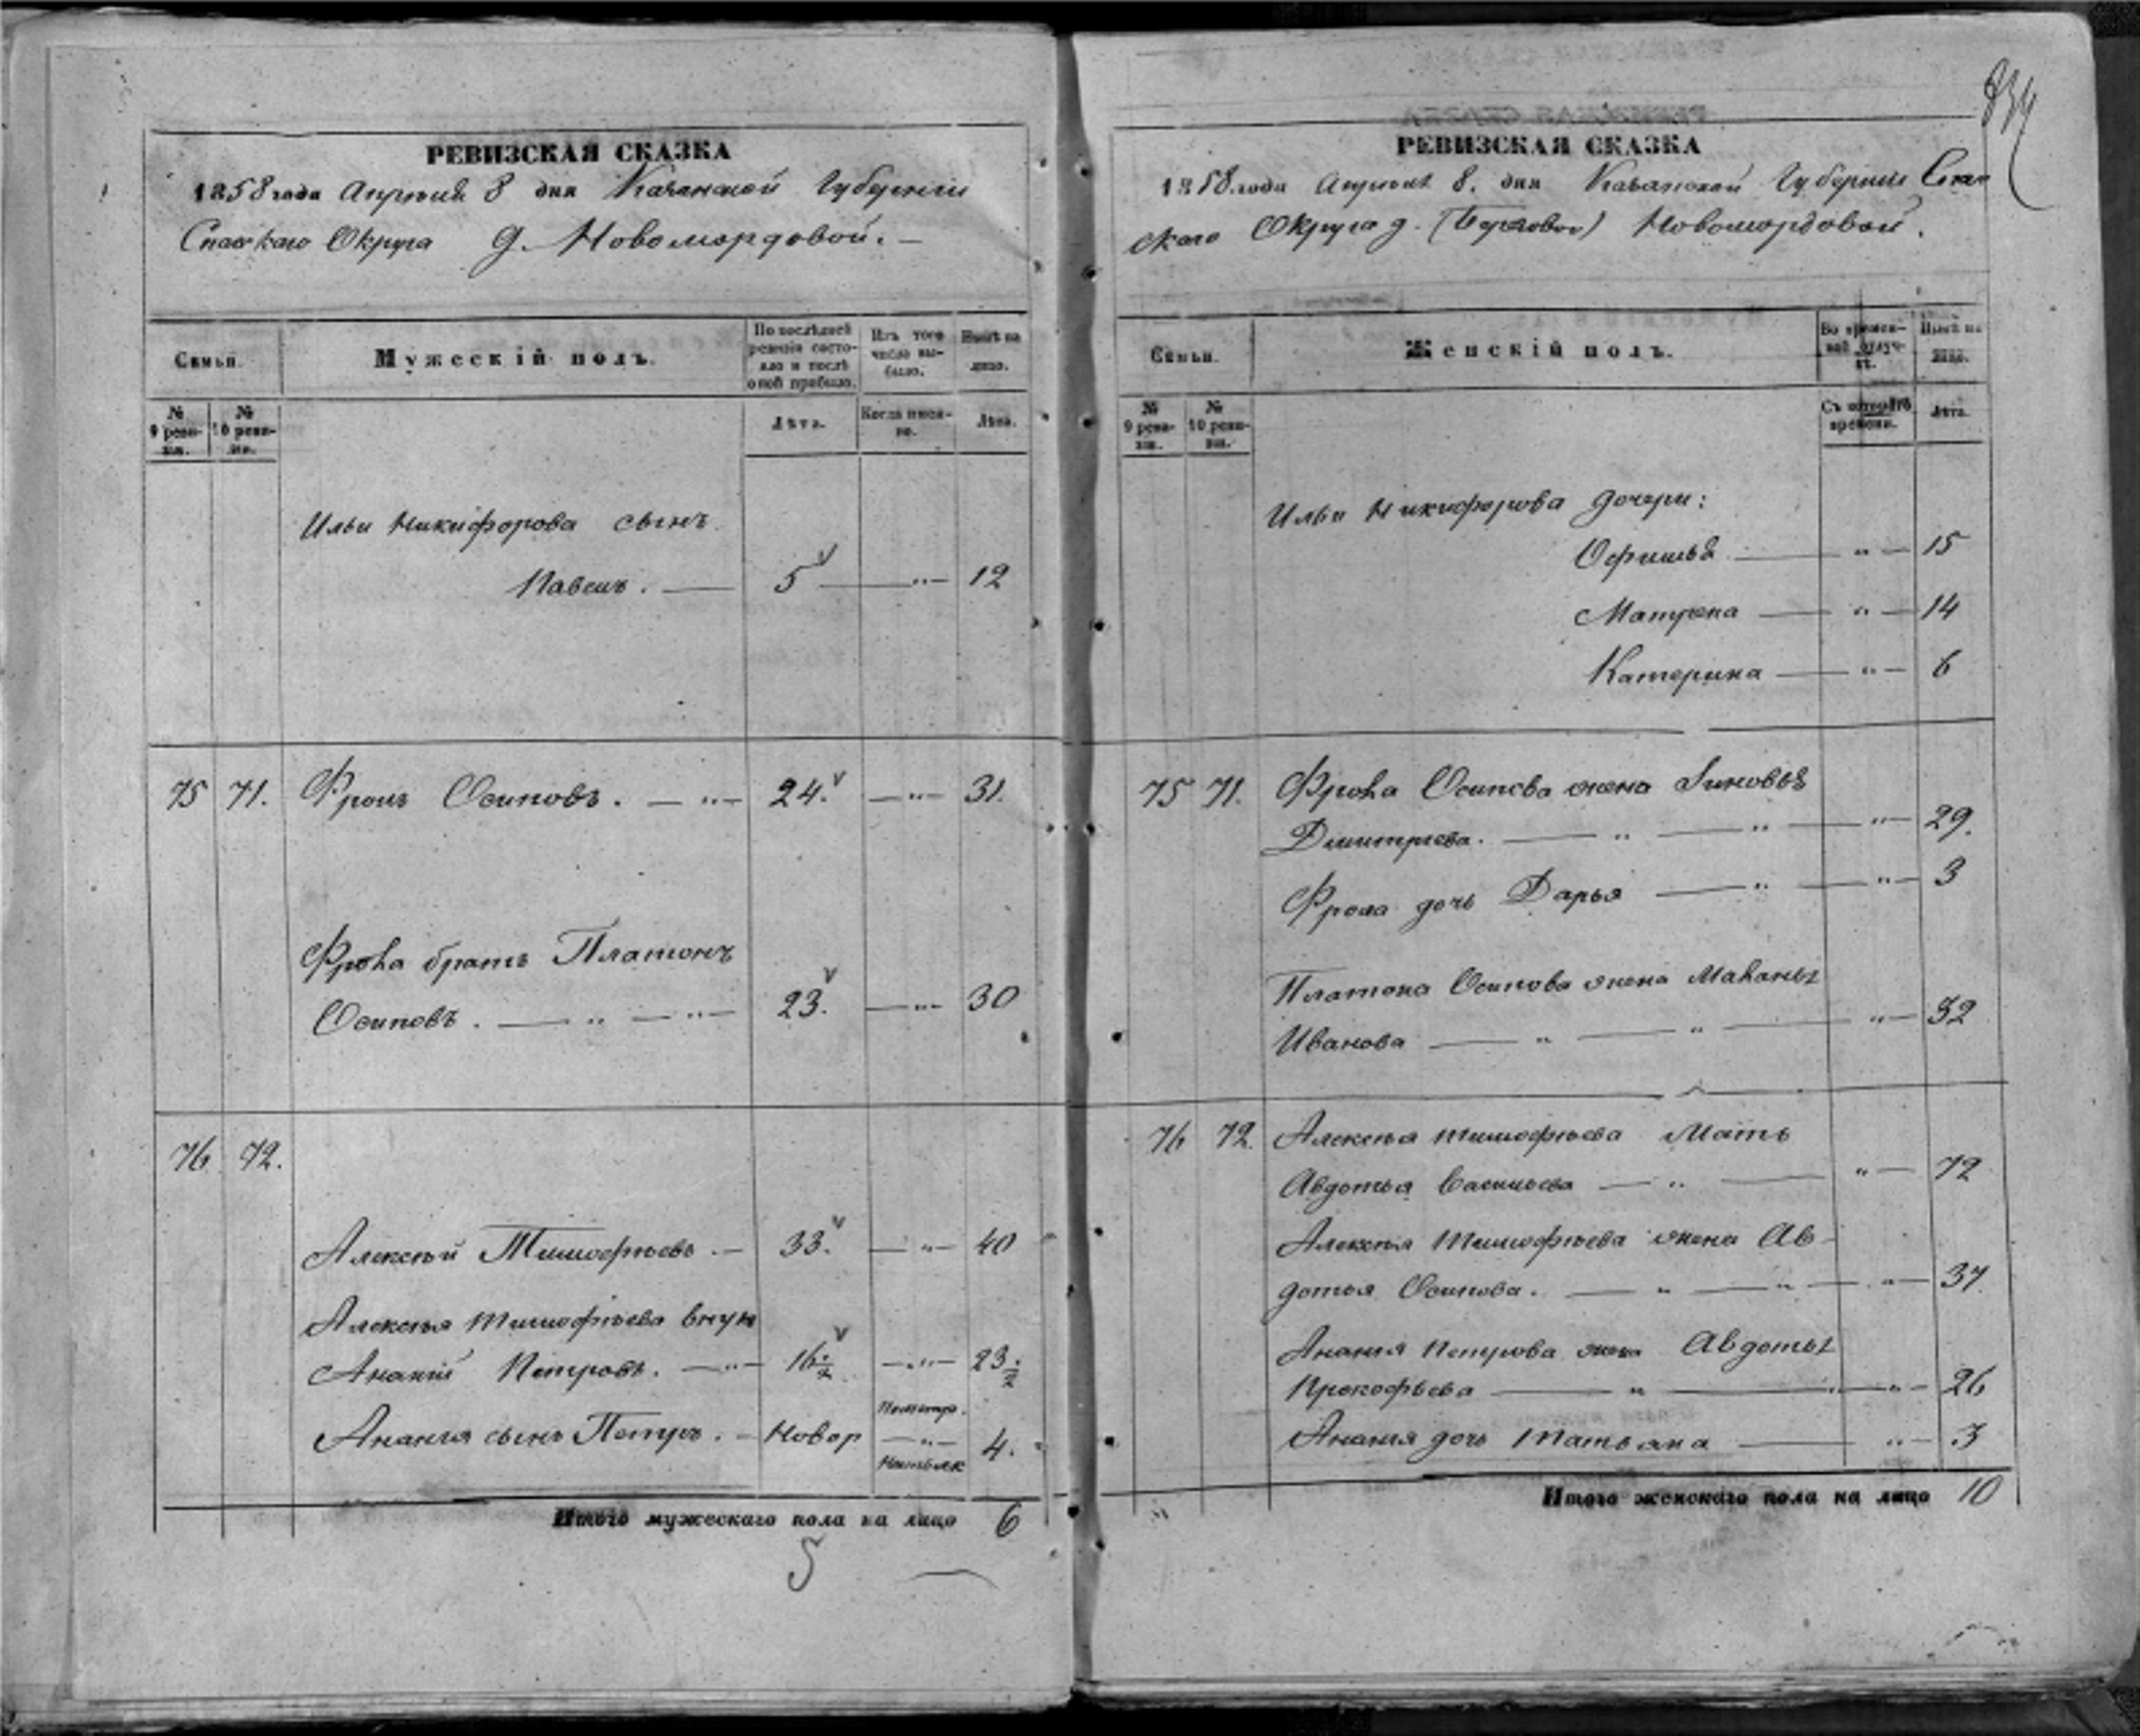 РЕВИЗСКАЯ СКАЗКА
1858 года Апреля 8 дня Казанской Губернии
Спаскаго Округа д. Новомордовой. —
Семьи.
Мужескій полъ.
По послѣдней ревизіи состояло и послѣ оной прибыло.
Изъ того числа выбыло.
Нынѣ на лицо.
№ 9 ревизіи.
№ 10 ревизіи.
Лѣта.
Когда именно.
Лѣта.
Ильи Никифорова сынъ
Павелъ. — 5 — „ — 12
75 71. Фролъ Осиповъ. — „ — 24. — „ — 31.
Фрола братъ Платонъ
Осиповъ. — „ — „ — 23. — „ — 30
76 72.
Алексѣй Тимофѣевъ. — 33. — „ — 40
Алексѣя Тимофѣева внукъ
Ананій Петровъ. — „ — 16 ½ — „ — 23 ½
Ананія сынъ Петръ. — Новор — „ — 4.
Итого мужескаго пола на лицо 6
5
834
РЕВИЗСКАЯ СКАЗКА
1858 года Апреля 8. дня Казанской Губернии Спас
скаго Округа д. Новомордовой.
Семьи.
Женскій полъ.
Во временной отлучкѣ.
Нынѣ на лицо.
№ 9 ревизіи.
№ 10 ревизіи.
Съ котораго времени.
Лѣта.
Ильи Никифорова дочери:
— „ — 15
Матрена — „ — 14
Катерина — „ — 6
75 71. Фрола Осипова жена Зиновья
Дмитриева. — „ — „ — „ — 29.
Фрола дочь Дарья — „ — „ — 3
Платона Осипова жена Маланья
Иванова — „ — „ — „ — 32
76 72. Алексѣя Тимофѣева Мать
Авдотья Васильева — „ — „ — 72
Алексѣя Тимофѣева жена Ав-
дотья Осипова. — „ — „ — „ — 37.
Ананія Петрова жена Авдотья
Прокофьева — „ — „ — „ — 26
Ананія дочь Татьяна — „ — 3
Итого женскаго пола на лицо 10